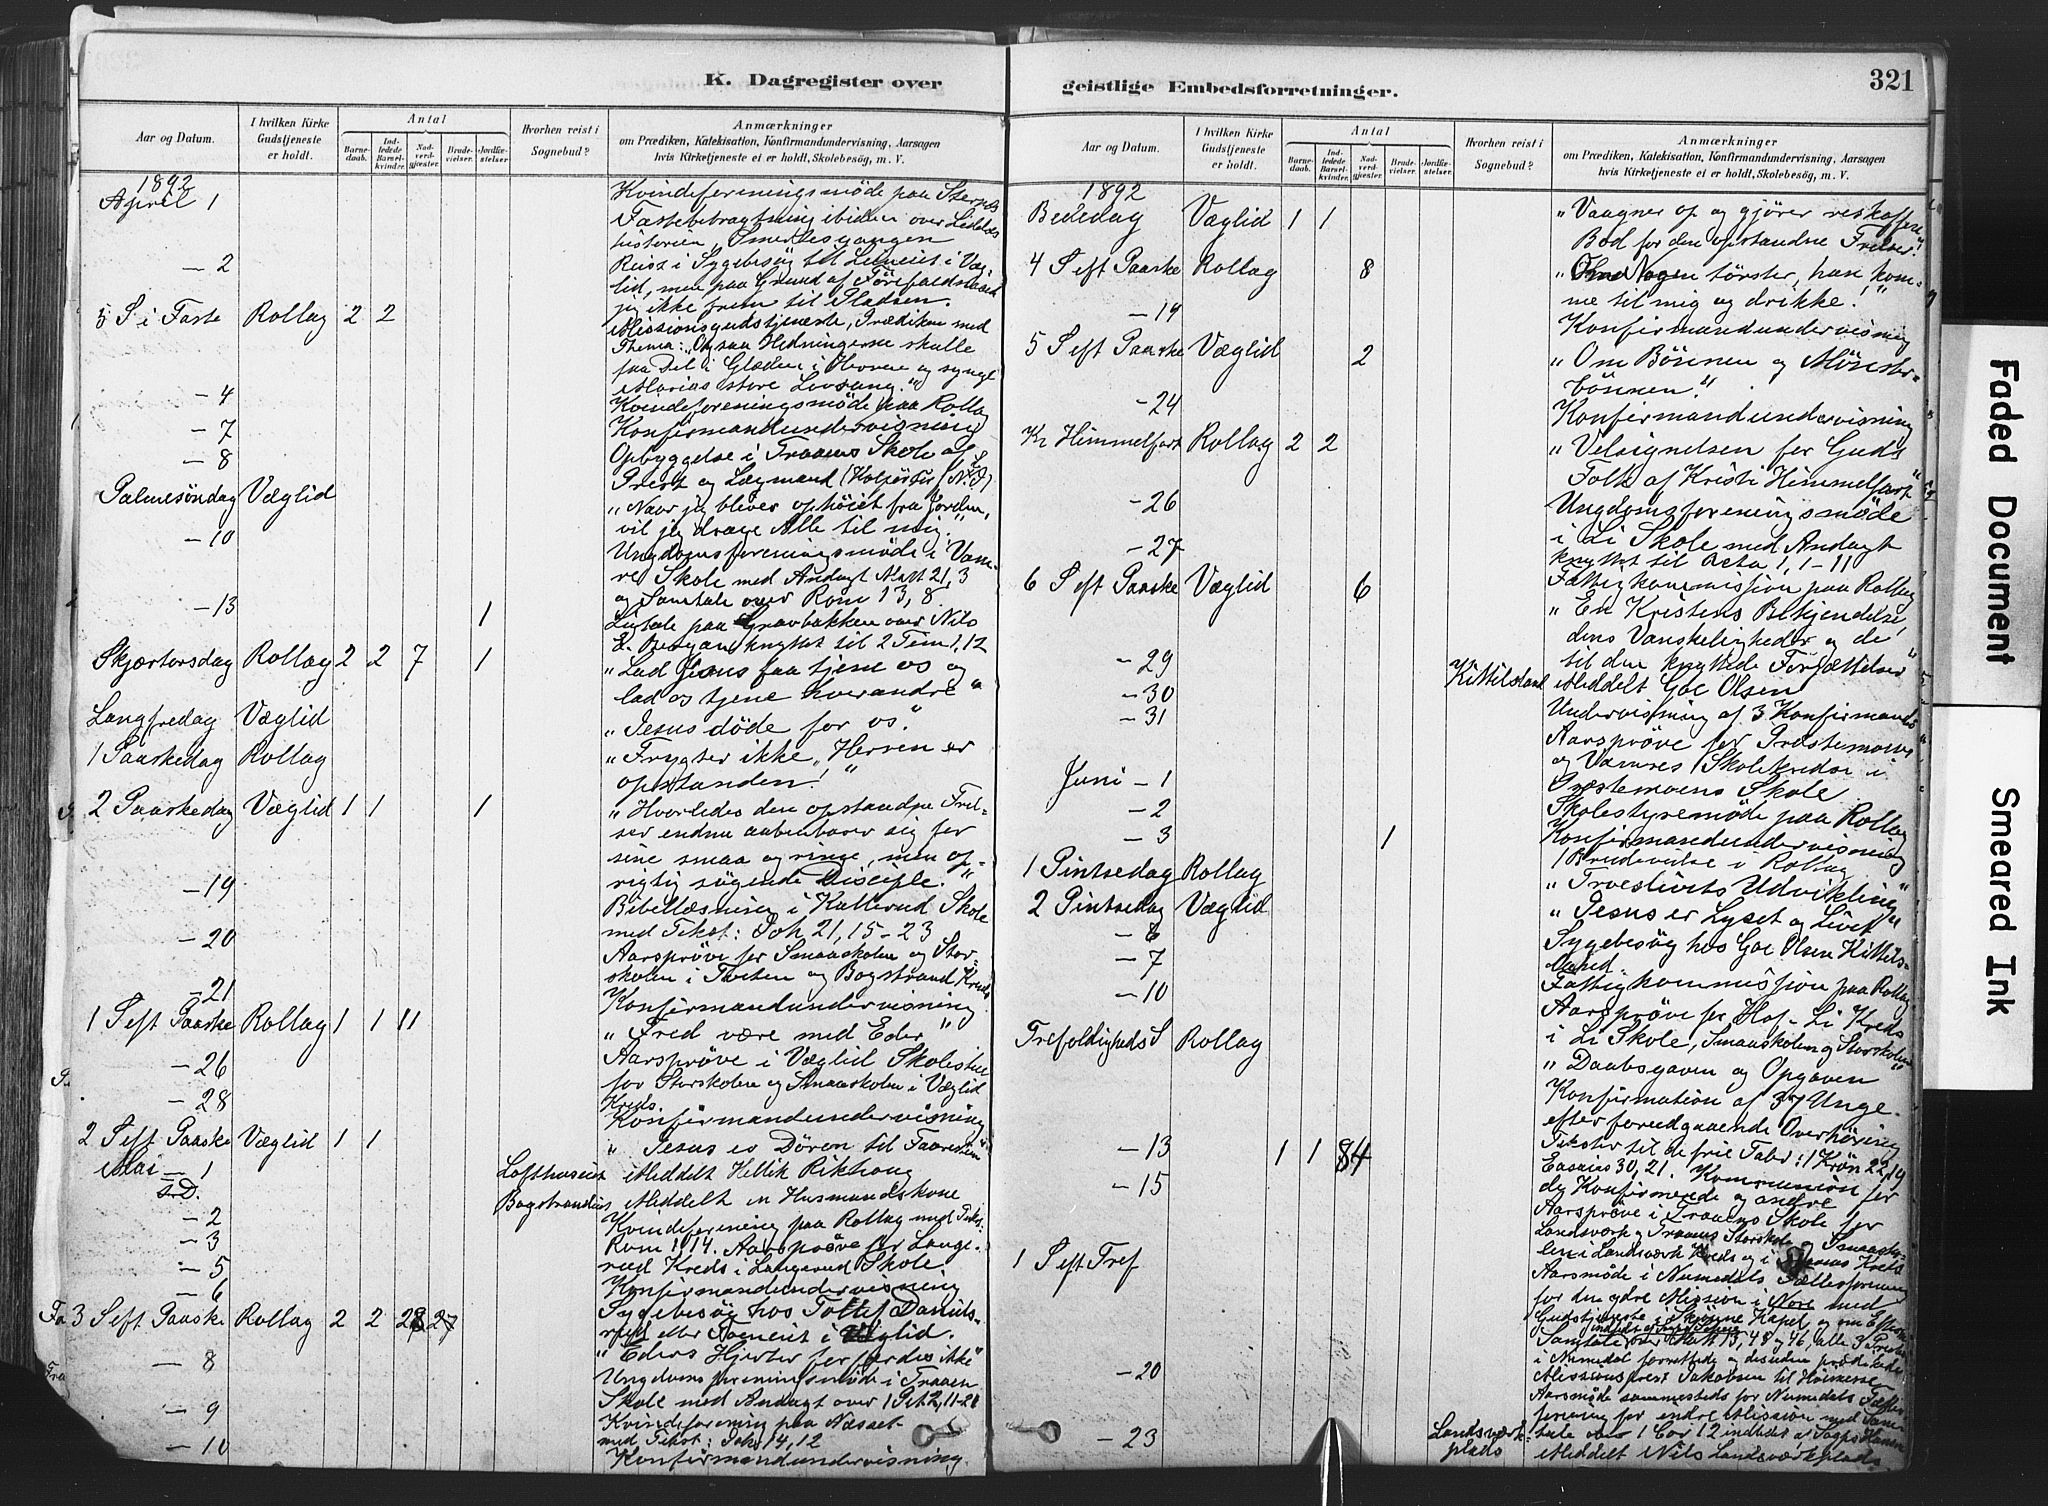 K. Dagregister over
Aar og Datum.
I hvilken Kirke Gudstjeneste er holdt.
Antal
Barne-daab.
Ind-ledede Barsel-kvinder.
Nad-verd-gjester.
Brude-vielser.
Jordfæ-stelser
Hvorhen reist i Sognebud?
Anmærkninger
om Prædiken, Katekisation, Konfirmandundervisning, Aarsagen
hvis Kirketjeneste ei er holdt, Skolebesøg, m. V.
1892
April 1
Kvindeforeningsmøde paa
Fastebetragtning ibiden over Lidelses
historien „Smertesgangen
— 2
Reist i Sygebesøg til
lid, men paa Grund af
jeg ikke frem til Pladsen.
5 S i Faste Rollag 2 2
Missionsgudstjeneste, Prædiken med
Thema: „Ogsaa Hedningerne skulle
faa Del i Glæden i Herren og synge
Marias store Lovsang."
— 4
Kvindeforeningsmøde paa Rollag
— 7
Konfirmandundervisning
— 8
Opbyggelse i Traaens Skole af
Prest og Lægmand
Palmesøndag Væglid
„Naar jeg bliver ophøiet fra Jorden,
vil jeg drage Alle til mig."
— 10
Ungdomsforeningsmøde i
Skole med Andagt Matt 21, 3
og Samtale over Rom 13, 8
— 13 1
Ligtale paa Gravbakken over Nils
knyttet til 2 Tim 1,12
Skjærtorsdag Rollag 2 2 7 1
„Lad Jesus faa tjene os og
lad os tjene hverandre"
Langfredag Væglid
„Jesus døde for os".
1 Paaskedag Rollag
„Frygter ikke, Herren er
opstanden!"
2 Paaskedag Væglid 1 1 1
„Hvorledes den opstandne Frel-
ser endnu aabenbarer sig for
sine smaa og ringe, men op-
rigtig søgende Disciple."
— 19
Bibellæsning i Kallerud Skole
med Tekst: Joh 21, 15-23
— 20
Aarsprøve for Smaaskolen og Stor-
skolen i Tveiten og Bogstrand Kreds
— 21
Konfirmandundervisning
1 S eft Paaske Rollag 1 1 11
„Fred være med Eder"
— 26
Aarsprøve i Væglid Skolestue
for Storskolen og Smaaskolen i Væglid
Kreds.
— 28
Konfirmandundervisning
2 S eft Paaske Væglid 1 1
„Jesus er Døren til Faarestien"
Mai — 1
Lofthuseiet
Meddelt Kittik Rikhaug
s.D.
Bogstrandeiet
Meddelt en Husmandskone
— 2
Kvindeforening paa Rollag med Tekst
— 3
Rom 1,14. Aarsprøve for Lange-
rud Kreds i Langerud Skole
— 5
Konfirmandundervisning
— 6
Sygebesøg hos Tollef Daniels-
i Væglid.
3 S eft Paaske Rollag 2 2 27
„Eders Hjerter forfærdes ikke"
— 8
Ungdomsforeningsmøde i Traaen
Skole med Andagt over 1 Pet 2, 11-21
— 9
Kvindeforening paa Næset
med Tekst: Joh 14,12
— 10
Konfirmandundervisning.
geistlige Embedsforretninger.
321
Aar og Datum.
I hvilken Kirke Gudstjeneste er holdt.
Antal
Barne-daab.
Ind-ledede Barsel-kvinder.
Nad-verd-gjester.
Brude-vielser.
Jordfæ-stelser.
Hvorhen reist i Sognebud?
Anmærkninger
om Prædiken, Katekisation, Konfirmandundervisning, Aarsagen
hvis Kirketjeneste ei er holdt, Skolebesøg, m. V.
1892
Bededag Væglid 1 1
„Vaagner op og gjører retskaffen
Bod for den opstandne Frelser!"
4 S eft Paaske Rollag 8
Nogen tørster, han kom-
me til mig og drikke!"
— 19
Konfirmandundervisning
5 S eft Paaske Væglid 2
„Om Bønnen og Mønster-
bønnen".
— 24
Konfirmandundervisning
Kr Himmelfart Rollag 2 2
„Velsignelsen for Guds
Folk af Kristi Himmelfart"
— 26
Ungdomsforeningsmøde
i Li Skole med Andagt
knyttet til Acta 1, 1-11
— 27
Fattigkommissjon paa Rollag
6 S eft Paaske Væglid 6
„En Kristens Bekjendelse,
dens Vanskeligheder og de
til den knyttede Forjættelser"
— 29
Kittilsland
Meddelt Goe Olsen
— 30
Undervisning af 3 Konfirmander
— 31
Aarsprøve for Prestemoens
og Værnes Skolekredse i
Præstemoens Skole
Juni — 1
Skolestyremøde paa Rollag
— 2
Konfirmandundervisning
— 3 1
1 Brudevielse i Rollag
1 Pintsedag Rollag
„Troeslivets Udvikling"
2 Pintsedag Væglid
„Jesus er Lyset og Livet"
— 6
Sygebesøg hos Goe Olsen Kittils-
land.
— 7
Fattigkommissjon paa Rollag
— 10
Aarsprøve for Hof-Li Kreds
i Li Skole, Smaaskolen og Storskolen
Trefoldigheds S Rollag
„Daabsgaven og Opgaven"
Konfirmation af 37 Unge
efter forudgaaende Overhøring
Tekster til de frie Taler: 1 Krøn 22,19
Easaias 30, 21. Kommunion for
de Konfirmerede og andre
— 13 1 1 84
— 15
Aarsprøve i Traaens Skole for
Landsværk og Traaens Storskole og Smaasko-
len i Landsværk Kreds og i Traaens Kreds
1 S eft Tref
Aarsmøde i Numedals Fællesforening
for den ydre Mission i Nore med
Gudstjeneste i Skjønne Kapel og om Efterm
Samtale over Matt 13, 48 og 46, alle 3 Prester
i Numedal forrettede og desuden prædikede
— 20
Missionsprest Jakobsen til Høimesse
Aarsmøde sammesteds for Numedals Fælles
forening for indre Mission med Sam-
— 23
Landsværk-
plads
tale over 1 Cor 12 indledet af Sogpr Hansen
Meddelt Nils Landsværkplads
Faded Document
Smeared Ink